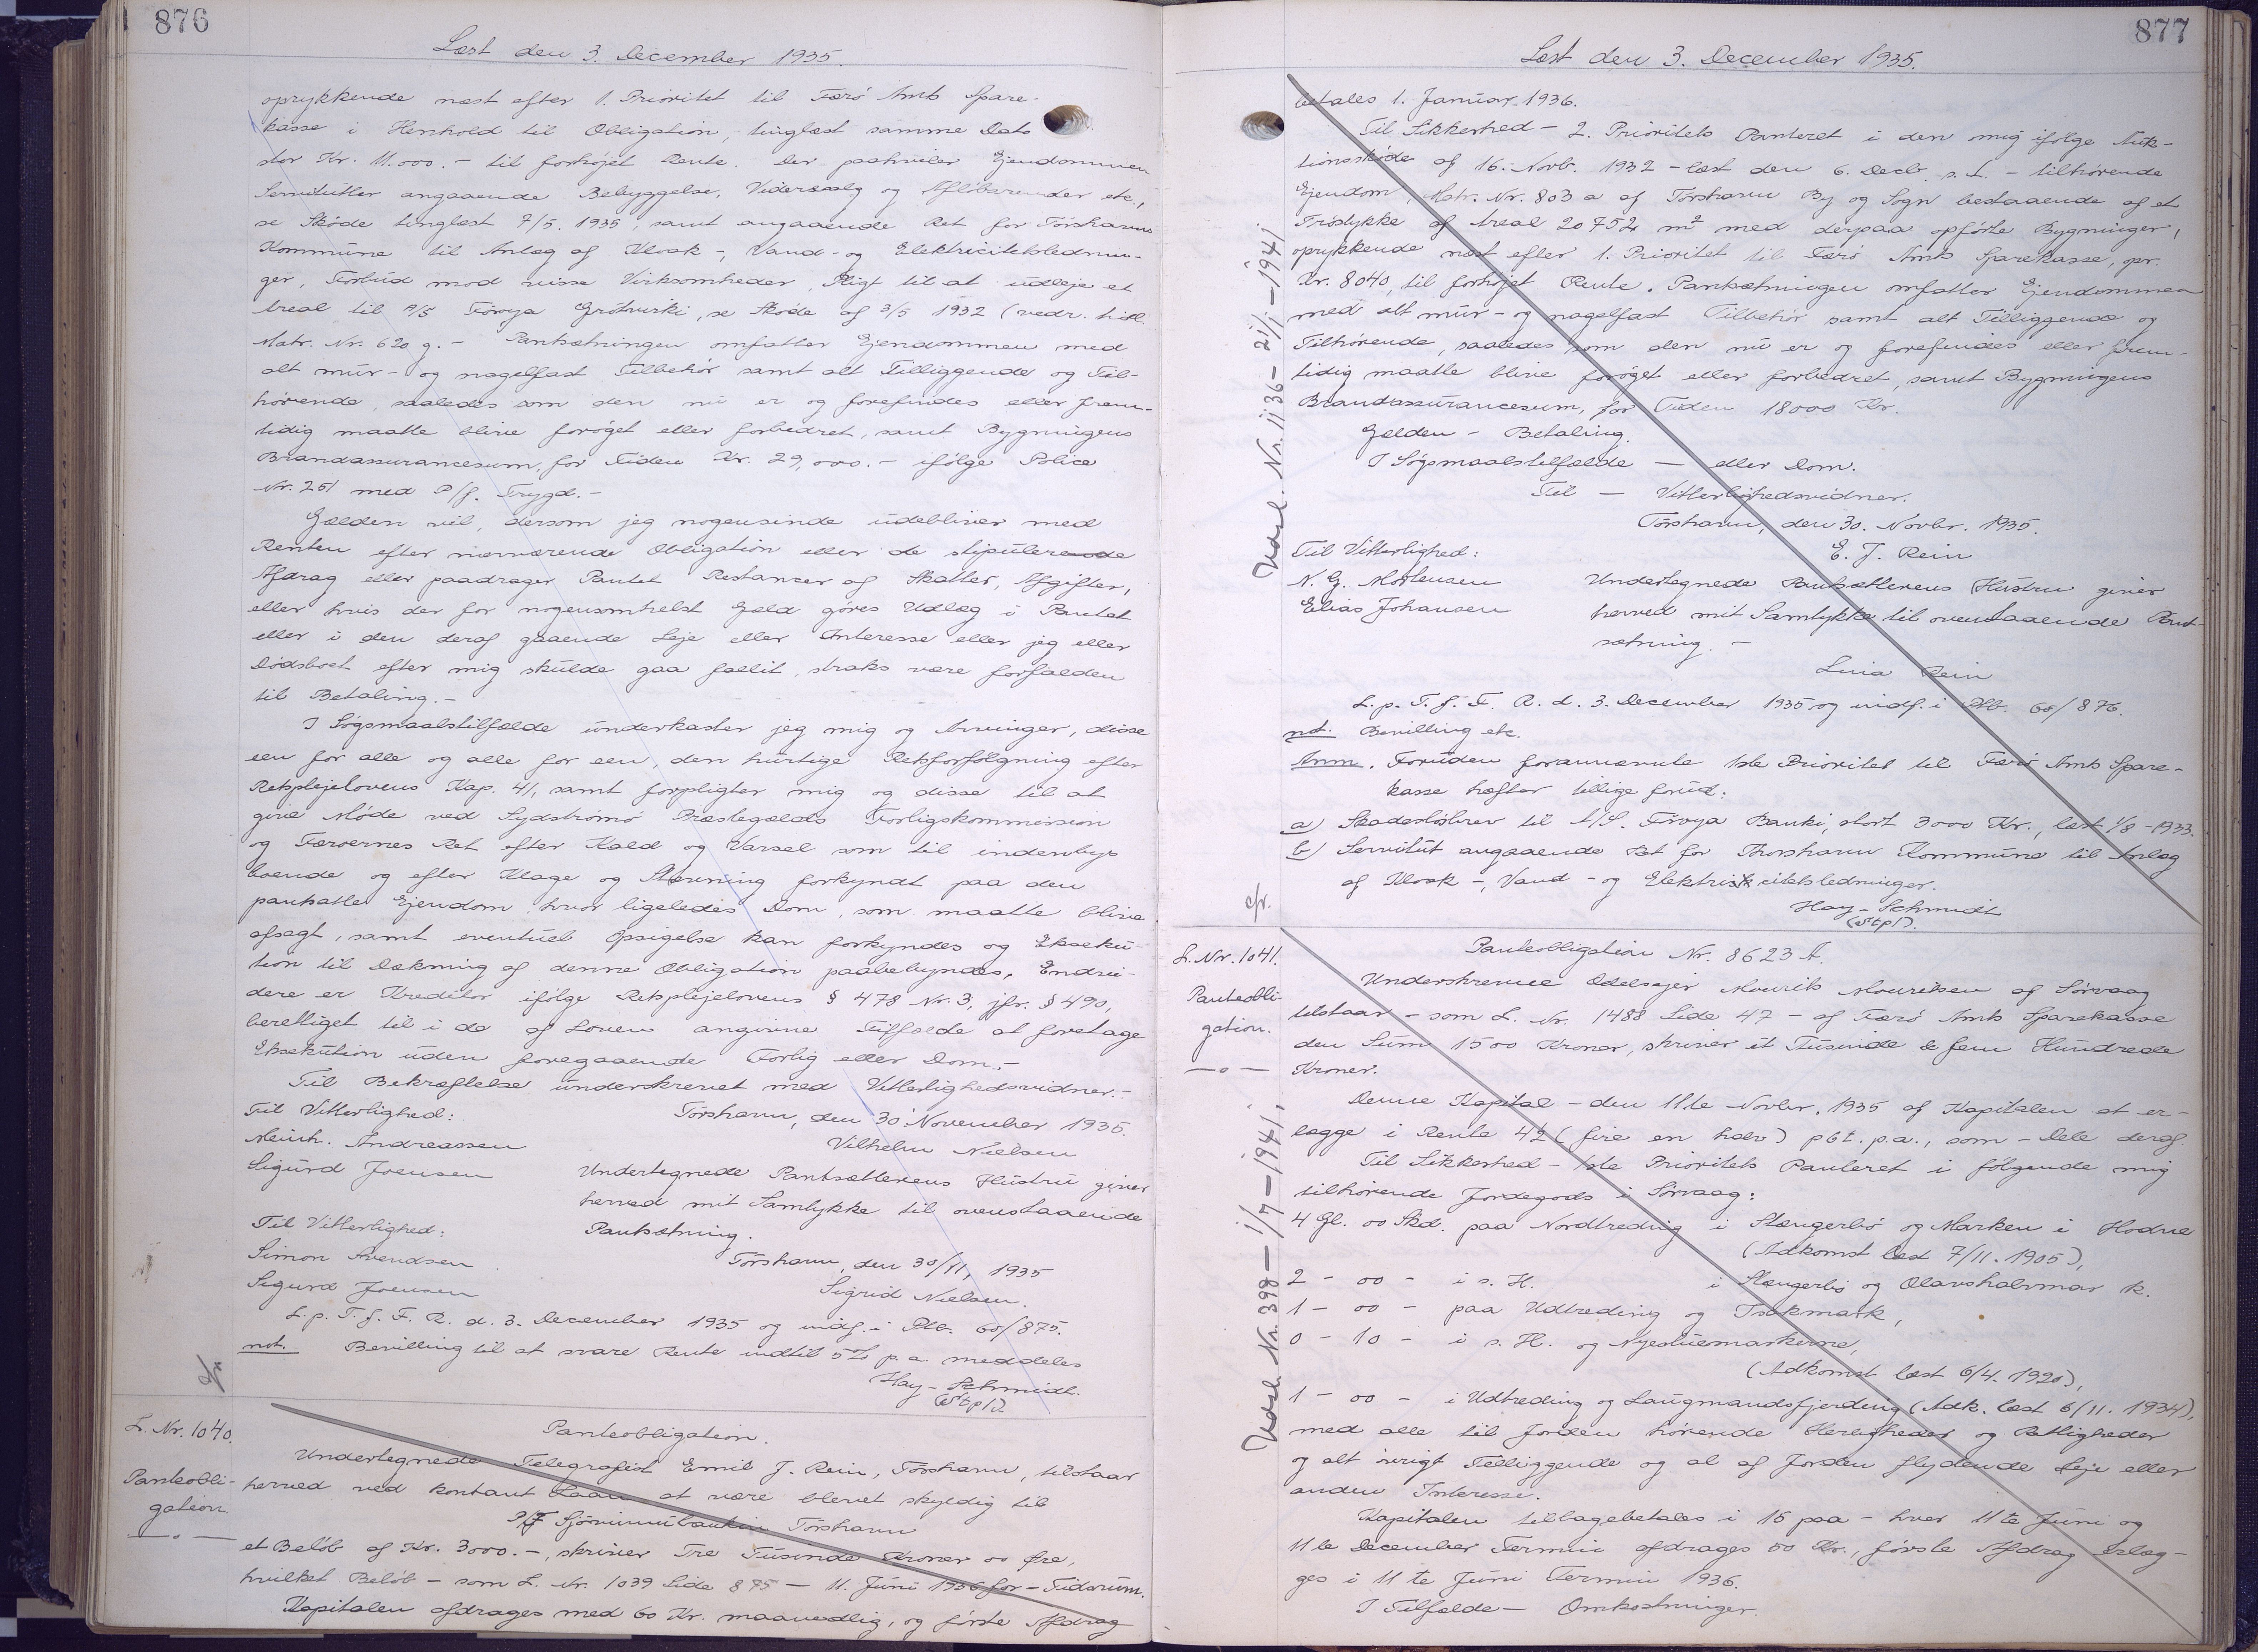 876
Læst den 3. December 1935.
oprykkende næst efter 1. Prioritet til Færø Amts Spare-
kasse i Henhold til Obligation, tinglæst samme Dato
stor Kr. 11.000.- til forhøjet Rente. Der paahviler Ejendommen
Servitutter angaaende Bebyggelse, Videresalg og Afløbsrender etc.,
se Skøde tinglæst 7/5. 1935, samt angaaende Ret for Tórshavns
Kommune til Anlæg af Kloak-, Vand- og Elektricitetslednin-
ger, Forbud mod visse Virksomheder, Pligt til at udleje et
Areal til A/S Føroya Grótvirki, se Skøde af 3/5 1932 (vedr. tidl.
Matr. Nr. 620 g. - Pantsætningen omfatter Ejendommen med
alt mur- og nagelfast Tilbehør samt alt Tilliggende og Til-
hørende, saaledes som den nu er og forefindes eller frem-
tidig maatte blive forøget eller forbedret, samt Bygningens
Brandassurancesum, for Tiden Kr. 29,000.- ifølge Police
Nr. 251 med P/f. Trygd.-
Gælden vil, dersom jeg nogensinde udebliver med
Renten efter nærværende Obligation eller de stipulerende
Afdrag eller paadrager Pantet Restancer af Skatter, Afgifter,
eller hvis der for nogensomhelst Gæld gøres Udlæg i Pantet
eller i den deraf gaaende Leje eller Interesse eller jeg eller
Dødsboet efter mig skulde gaa fallit, straks være forfalden
til Betaling.-
I Søgsmaalstilfælde underkaster jeg mig og Arvinger, disse
een for alle og alle for een, den hurtige Retsforfølgning efter
Retsplejelovens Kap. 41, samt forpligter mig og disse til at
give Møde ved Sydstrømø Præstegælds Forligskommission
og Færøernes Ret efter Kald og Varsel som til indenbys
boende og efter Klage og Stævning forkyndt paa den
pantsatte Ejendom, hvor ligeledes Dom, som maatte blive
afsagt, samt eventuel Opsigelse kan forkyndes og Ekseku-
tion til Dækning af denne Obligation paabegyndes. Endvi-
dere er Kreditor ifølge Retsplejelovens § 478 Nr. 3, jfr. § 490,
berettiget til i de af Loven angivne Tilfælde at foretage
Eksekution uden foregaaende Forlig eller Dom.-
Til Bekræftelse underskrevet med Vitterlighedsvidner.-
Til Vitterlighed: Tórshavn, den 30 November 1935.
Meinh. Andreassen Vilhelm Nielsen
Sigurd Joensen Undertegnede Pantsætterens Hustru giver
herved mit Samtykke til ovenstaaende
Til Vitterlighed: Pantsætning.
Simon Svendsen Tórshavn, den 30/11, 1935
Sigurd Joensen Sigrid Nielsen.
L. p. T. f. F. R. d. 3. December 1935 og indf. i Ptb. 60/875.
not. Bevilling til at svare Rente indtil 5% p.a. meddeles
Hay-Schmidt.
(Stpl).
L. Nr. 1040.
Panteobli-
gation.
Panteobligation.
Undertegnede Telegrafist Emil J. Rein, Tórshavn, tilstaar
herved ved kontant Laan at være blevet skyldig til
P/F Sjóvinnubankin Tórshavn
et Beløb af Kr. 3000.-, skriver Tre Tusinde Kroner 00 Øre,
hvilket Beløb - som L. Nr. 1039 Side 875 - 11. Juni 1936 for - Tidsrum.
Kapitalen afdrages med 60 Kr. maanedlig, og første Afdrag
877
Læst den 3. December 1935.
betales 1. Januar 1936.
Til Sikkerhed - 2. Prioritets Panteret i den mig ifølge Auk-
tionsskøde af 16. Novbr. 1932 - læst den 6. Decbr. s. A. - tilhørende
Ejendom, Matr. Nr. 803 a af Tórshavn By og Sogn bestaaende af et
Trøstykke af Areal 20752 m² med derpaa opførte Bygninger,
oprykkende næst efter 1. Prioritet til Færø Amts Sparekasse, opr.
Kr. 8040, til forhøjet Rente. Pantsætningen omfatter Ejendommen
med alt mur- og nagelfast Tilbehør samt alt Tilliggende og
Tilhørende, saaledes som den nu er og forefindes eller frem-
tidig maatte blive forøget eller forbedret, samt Bygningens
Brandassurancesum, for Tiden 18000 Kr.
Gælden - Betaling.
I Søgsmaalstilfælde - eller Dom.
Til - Vitterlighedsvidner.
Tórshavn, den 30. Novbr. 1935.
Til Vitterlighed: E. J. Rein
N. G. Mortensen Undertegnede Pantsætterens Hustru giver
Elias Johansen herved mit Samtykke til ovenstaaende Pant-
sætning.-
Lina Rein
L. p. T. f. F. R. d. 3. December 1935 og indf. i Ptb. 60/876.
not. Bevilling etc.
Anm. Foruden forannævnte 1ste Prioritet til Færø Amts Spare-
kasse hæfter tillige forud:
a) Skadesløsbrev til A/S. Føroya Banki, stort 3000 Kr., læst 1/8 - 1933.
b) Servitut angaaende Ret for Thorshavn Kommune til Anlæg
af Kloak-, Vand- og Elektricitetsledninger.
Hay-Schmidt
(Stpl).
Udsl. Nr. 1136 - 21/1 - 1941
L. Nr. 1041.
Panteobli-
gation.
Panteobligation Nr. 8623 A.
Underskrevne Odelsejer Mourits Mouritsen af Sørvaag
tilstaar - som L. Nr. 1488 Side 47 - af Færø Amts Sparekasse
den Sum 1500 Kroner, skriver et Tusinde & fem Hundrede
Kroner.
Denne Kapital - den 11te Novbr. 1935 af Kapitalen at er-
lægge i Rente 4½ (fire en halv) pct. p.a., som - Dele deraf
Til Sikkerhed - 1ste Prioritets Panteret i følgende mig
tilhørende Jordegods i Sørvaag:
4 Gl. 00 Skd. paa Nordtreding i Stængerbø og Marken i Hodne
(Adkomst læst 7/11. 1905),
2 - 00 - i s. H. i Stængerbø og Olavshalsmar k.
1 - 00 - paa Udtreding og Tsakmark,
0 - 10 - i s. H. og Nyestuemarkerne,
(Adkomst læst 6/4. 1920),
1 - 00 - i Udtreding og Laugmandsfjerding (Adk. læst 6/11. 1934),
med alle til Jorden hørende Herligheder og Rettigheder
og alt øvrigt Tilliggende og al af Jorden flydende Leje eller
anden Interesse.
Kapitalen tilbagebetales i 15 paa - hver 11te Juni og
11te December Termin afdrages 50 Kr., første Afdrag erlæg-
ges i 11te Juni Termin 1936.
I Tilfælde - Omkostninger.
Udsl. Nr. 398 - 1/7 - 1941.